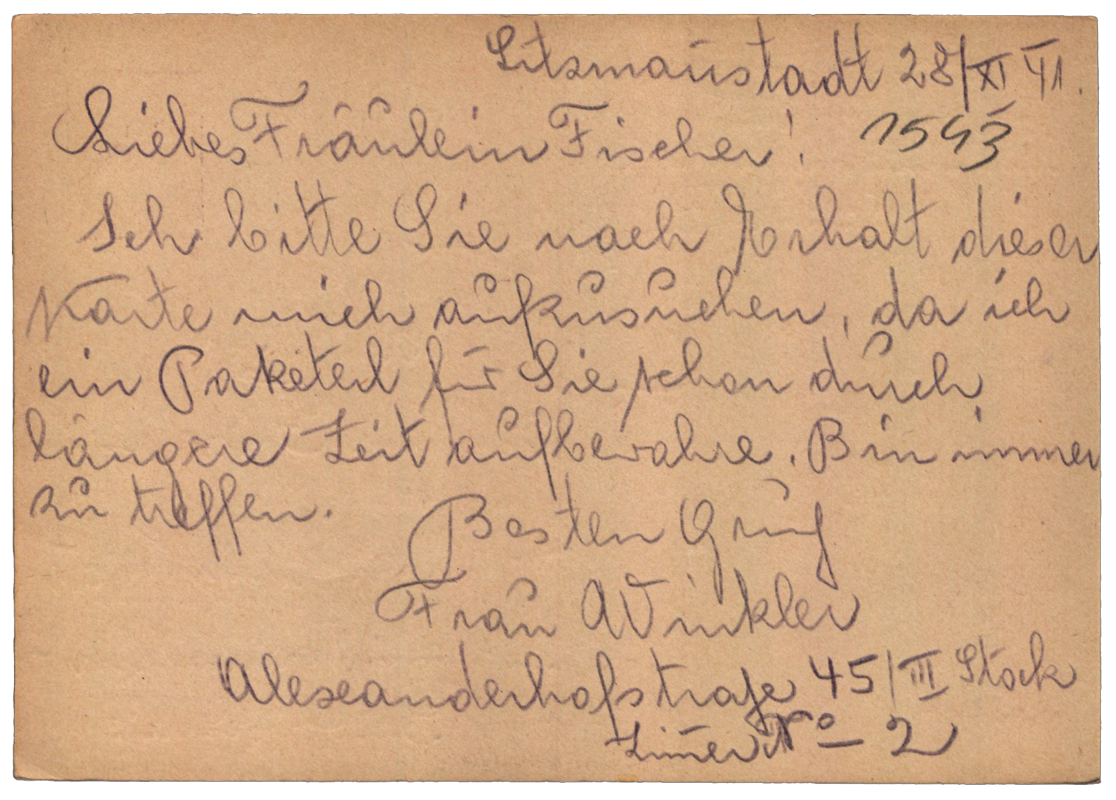 Litzmannstadt 28/XI 41.
1543
Liebes Fräulein Fischer!
Ich bitte Sie nach Erhalt dieser
Karte mich aufzusuchen, da ich
ein Paketerl für Sie schon durch
längere Zeit aufbewahre. Bin immer
zu treffen.
Besten Gruß
Frau Winkler
Alexanderhofstraße 45/III Stock
Zimer No 2